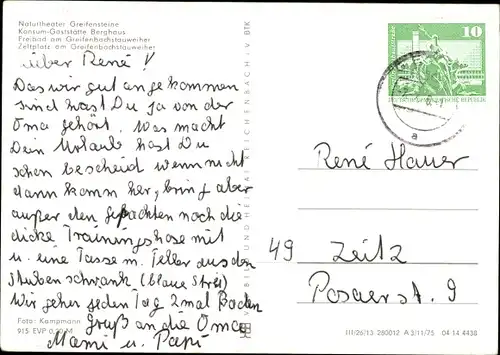 Naturtheater Greifensteine
Konsum-Gaststätte Berghaus
Freibad am Greifenbachstauweiher
Zeltplatz am Greifenbachstauweiher
über René!
Das wir gut angekommen
sind hast Du ja von der
Oma gehört. Was macht
Dein Urlaub hast Du
schon bescheid wenn nicht
dann komm her, bring aber
außer den gepachten noch die
dicke Trainingshose mit
u. eine Tasse m. Teller aus den
Stubenschrank (blaue Strei)
Wir gehen jeden Tag 2mal Baden
Gruß an die Oma
Mami u. Papi
Foto: Kampmann
915 EVP 0,20 M
BILD UND HEIMAT REICHENBACH i. V. BTK
10
DEUTSCHE DEMOKRATISCHE REPUBLIK
a
René Hauer
49 Zeitz
Posaer st. 9
III/26/13 280012 A 3/11/75 04 14 4438